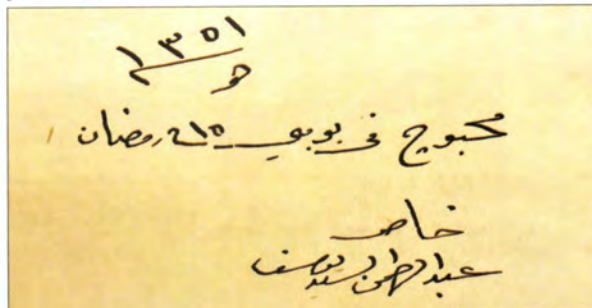 ١٣٥١
هـ
محبوج في بومبي ١٥ رمضان
خاص
عبدالرحمن السيد يوسف